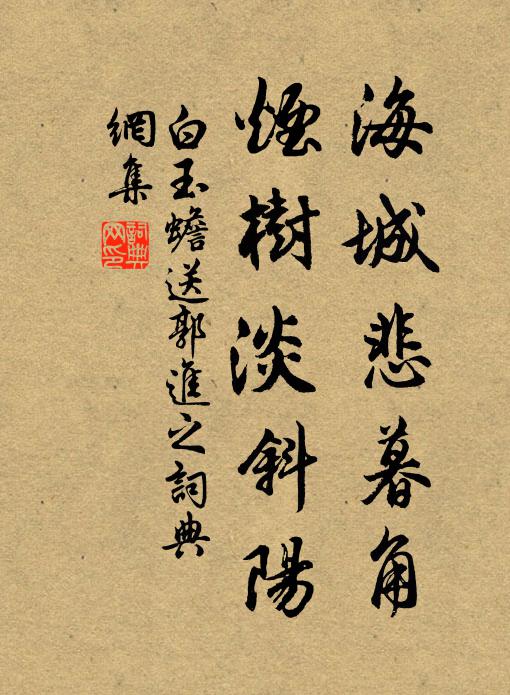 海城悲暮角
煙樹淡斜陽
白玉蟾送郭進之詞典
網集
詞典
网印